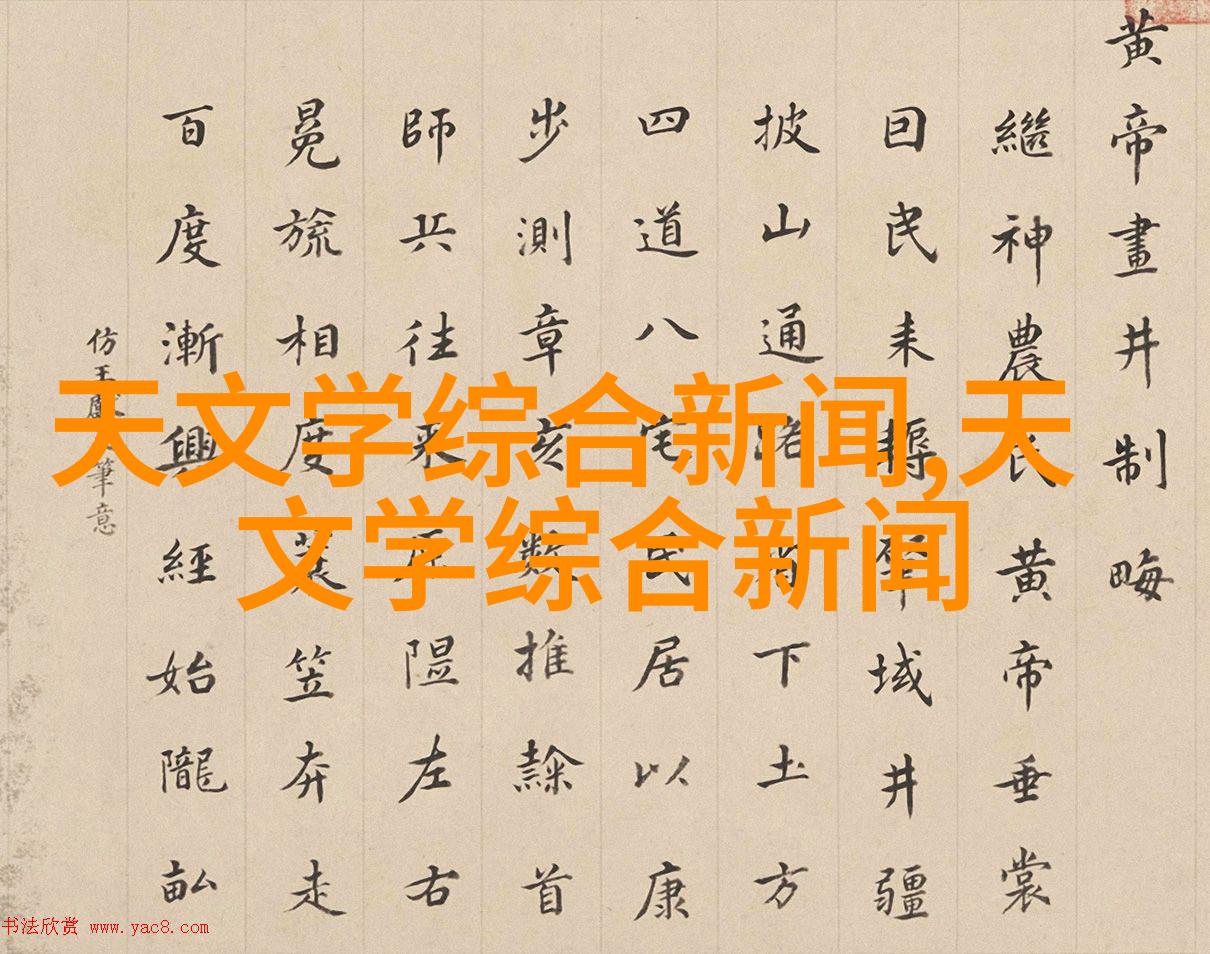 黄帝畫井制畮
繼神農氏黄帝垂裳
囙民耒耨域井疆
披山通路下土方
四道八宅民居以康
步測章亥數推隸首
師兵往來原隰左右
冕旒相度蓑笠奔走
百度漸興經始隴畝
仿王筆意
天文学综合新闻,天
文学综合新闻
书法欣赏 www.yac8.com